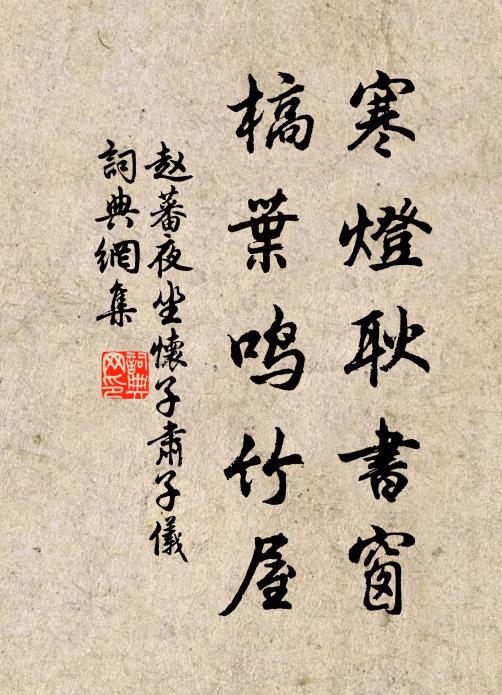 寒燈耿書窗
槁葉鸣竹屋
赵蕃夜坐懷子肅子儀
詞典網集
詞典
网印